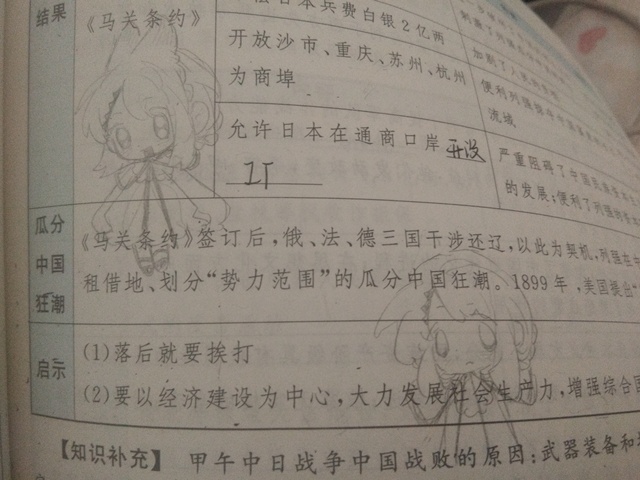 结果
《马关条约》
日本兵费白银2亿两
开放沙市、重庆、苏州、杭州
为商埠
便利列强
流域
允许日本在通商口岸开设
工厂
严重阻碍了中国民族资本主
的发展；便利了列强
瓜分
中国
狂潮
《马关条约》签订后，俄、法、德三国干涉还辽，以此为契机，列强在中
租借地、划分“势力范围”的瓜分中国狂潮。1899年，美国提出“
启示
(1)落后就要挨打
(2)要以经济建设为中心，大力发展社会生产力，增强综合国
【知识补充】 甲午中日战争中国战败的原因：武器装备和